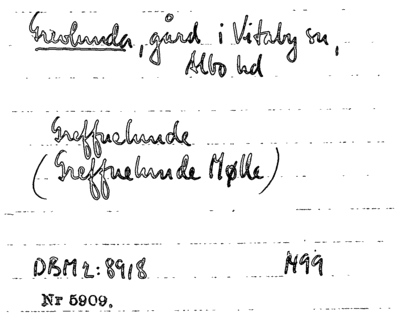 Grevlunda, gård i Vitaby sn,
Albo hd
Greffuelunde
(Greffuelunde Mølle)
DBM 2:89/8 1499
Nr 5909.